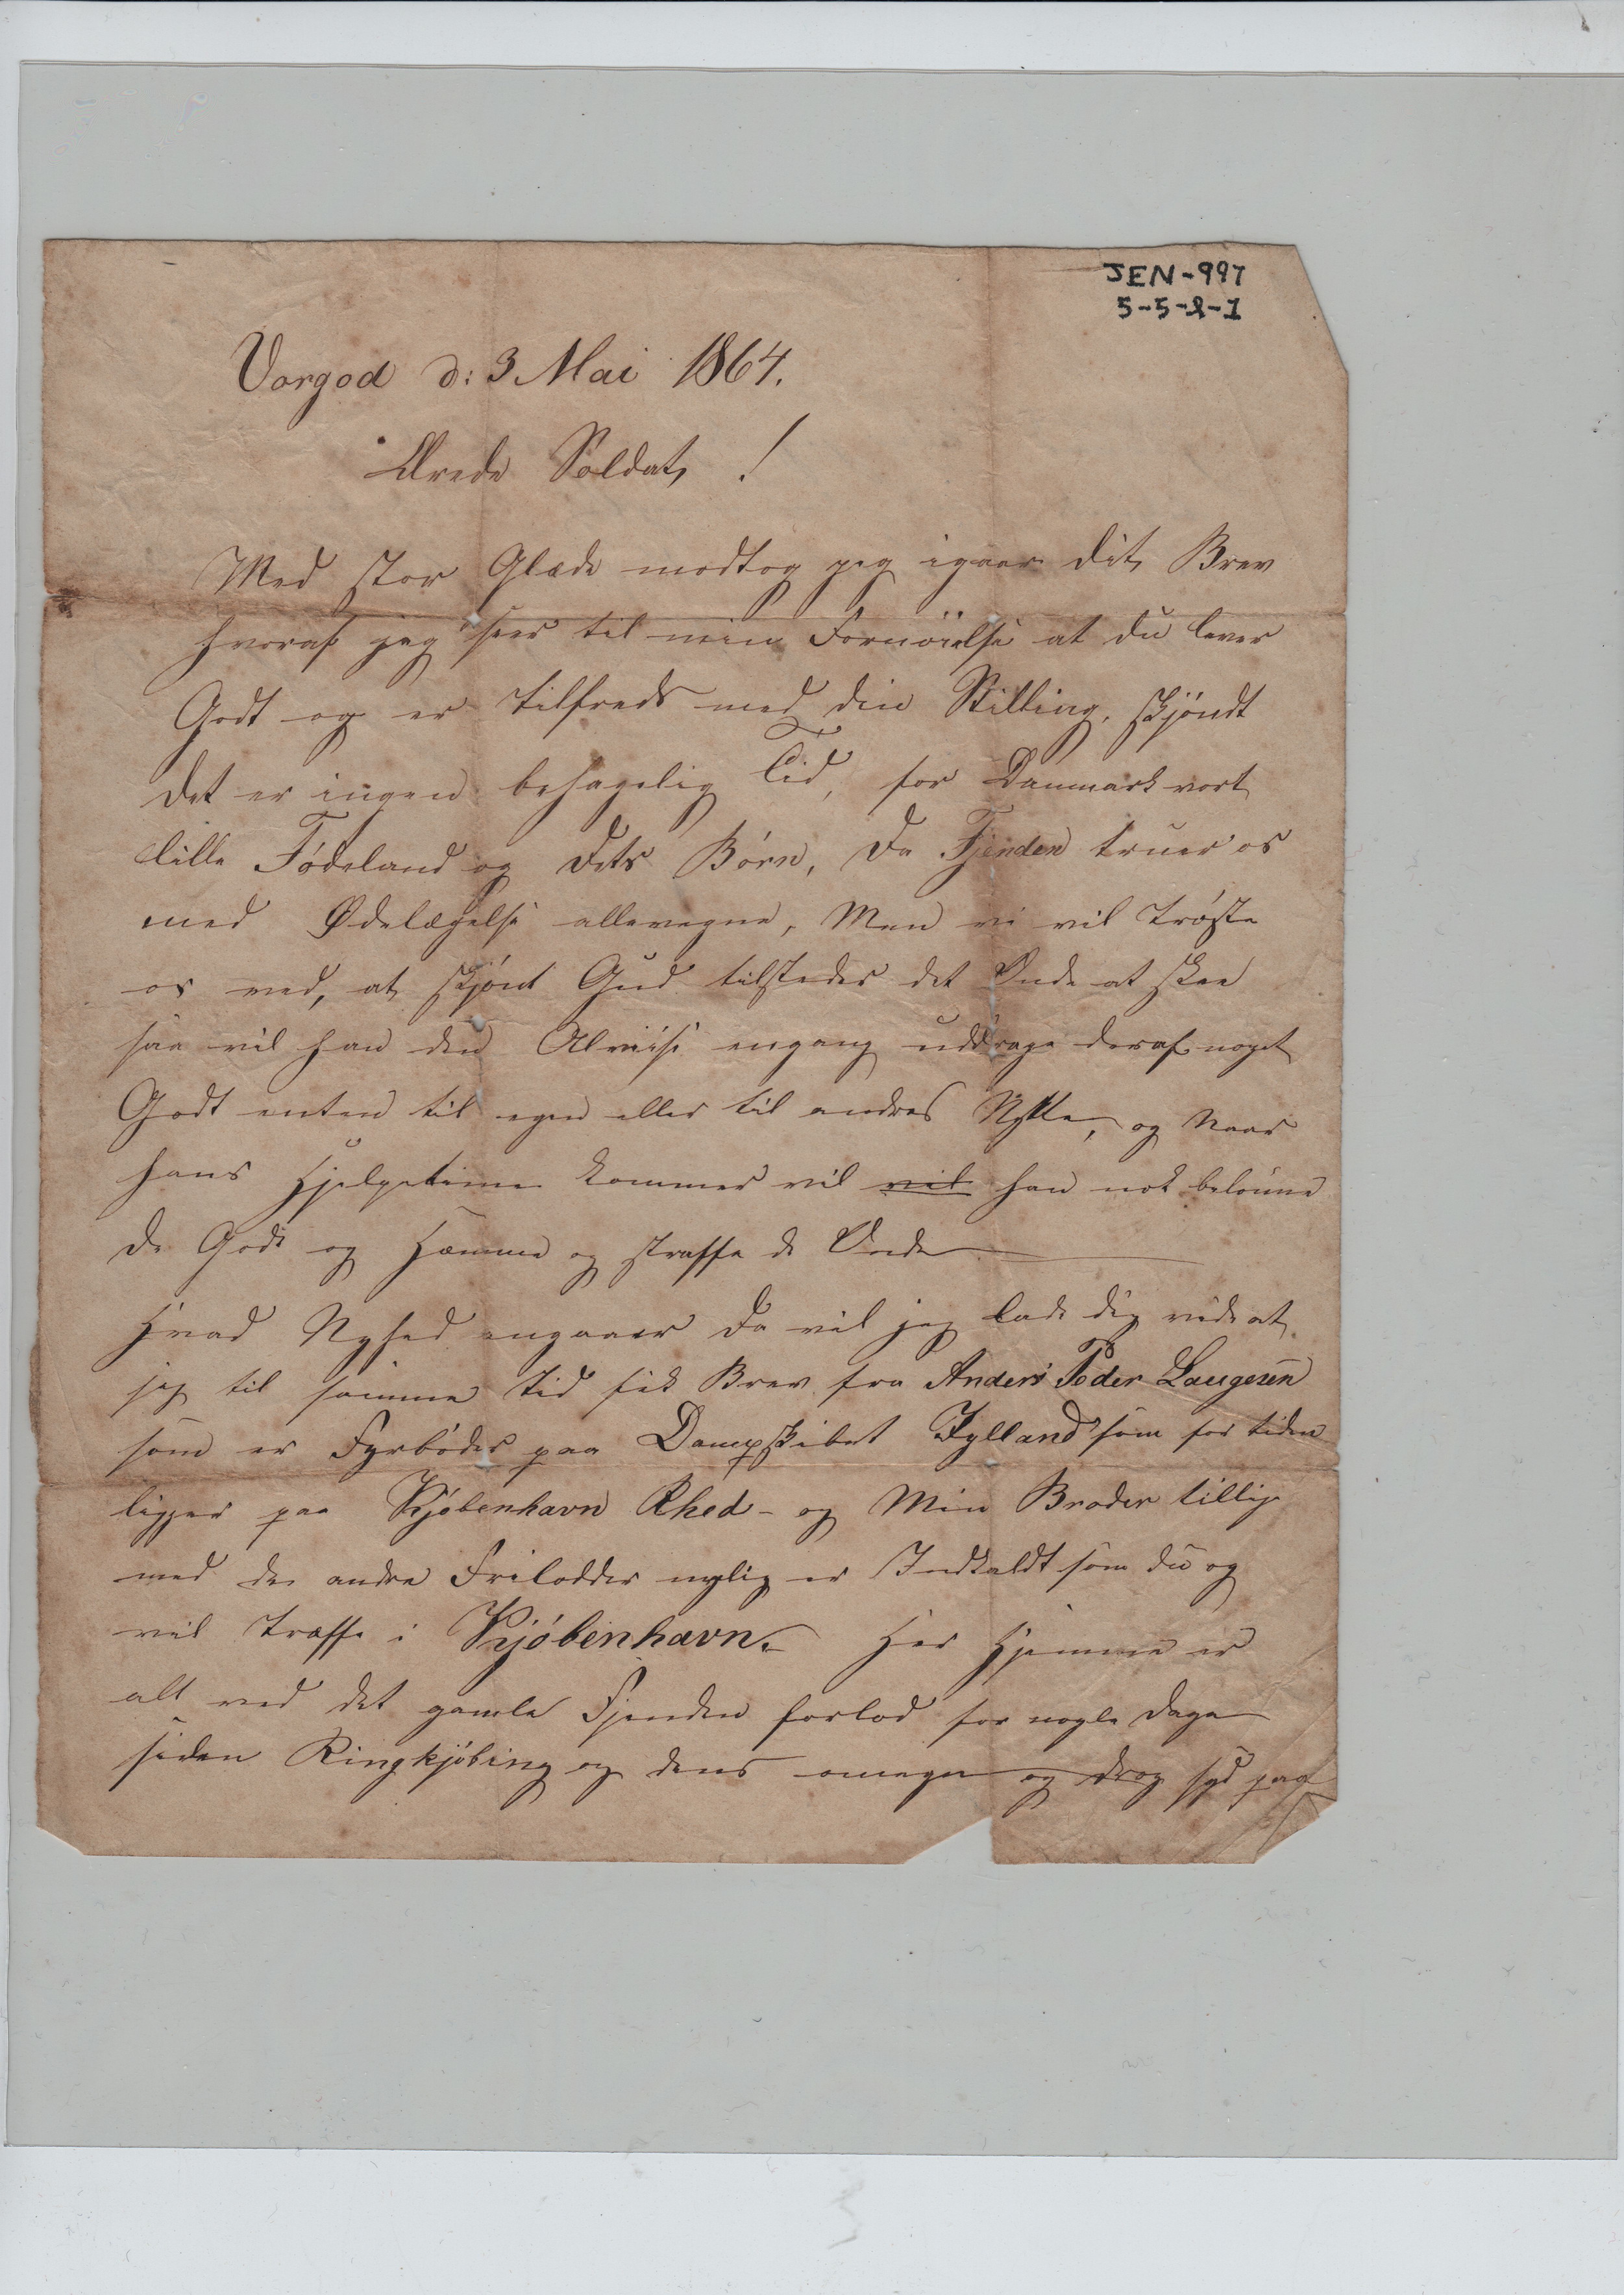 JEN-997
5-5-2-1
Vorgod d: 3 Mai 1864.
Ærede Soldat !
Med stor Glæde modtog jeg igaar dit Brev
hvoraf jeg seer til min Fornöielse at du lever
Godt og er tilfreds med din Stilling, skjöndt
det er ingen behagelig Tid, for Danmark vort
lille Födeland og dets Börn, da Fjenden truer os
med Ødelægelse allevegne, Men vi vil tröste
os ved, at skjönt Gud tilsteder det Onde at skee
saa vil han den Alviise engang uddrage deraf noget
Godt enten til egen eller til andres Nytte, og Naar
hans Hjelpetime kommer vil vil han nok belönne
de Gode og Hæmme og straffe de Onde
Hvad Nyhed angaaer da vil jeg lade dig vide at
jeg til samme tid fik Brev fra Anders Peder Laugesen
som er Fyrböder paa Dampskibet Jylland som for tiden
ligger paa Kjöbenhavn Rhed - og Min Broder tillige
med de andre Frilodder nylig er Indkaldt som du og
vil træffe i Kjöbenhavn. Her Hjemme er
alt ved det gamle Fjenden forlod for nogle dage
siden Ringkjöbing og dens omegn og drog syd paa